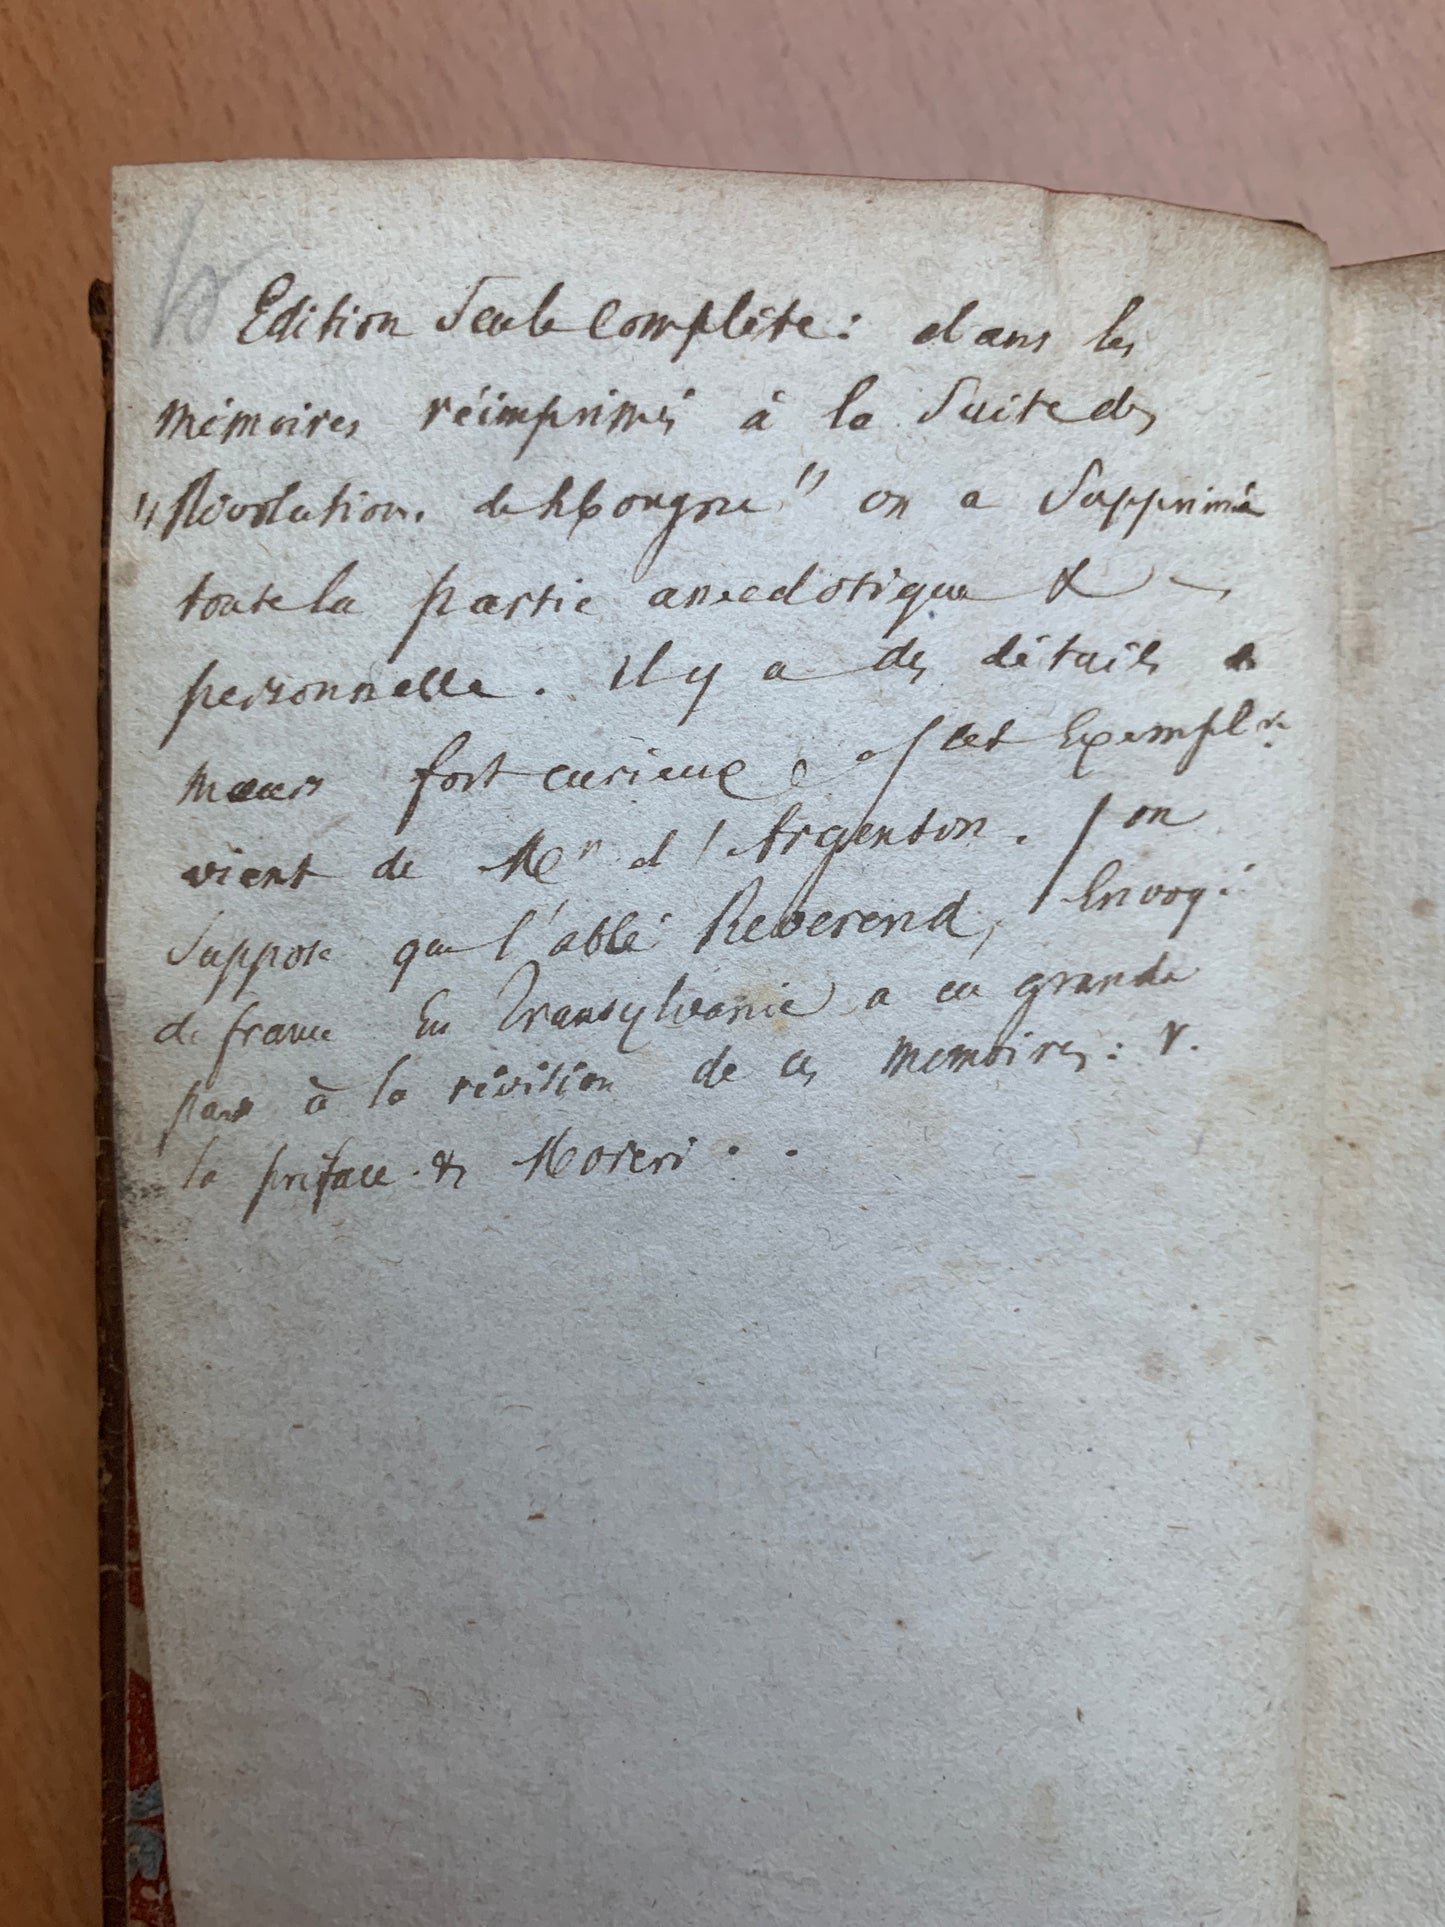 Edition Seule Complète : dans les
mémoires réimprimés à la Suite des
"Révolutions de hhongrie" on a Supprimé
toute la partie anecdotique &
personnelle. Il y a des détails de
mœurs fort curieux / cet Exempl.re
vient de Mr d'Argenton. / on
Suppose que l'abbé Reverend, Envoyé
de france En Transylvanie a eu grande
part à la révision de ces memoires : V.
la préface & Moreri . .